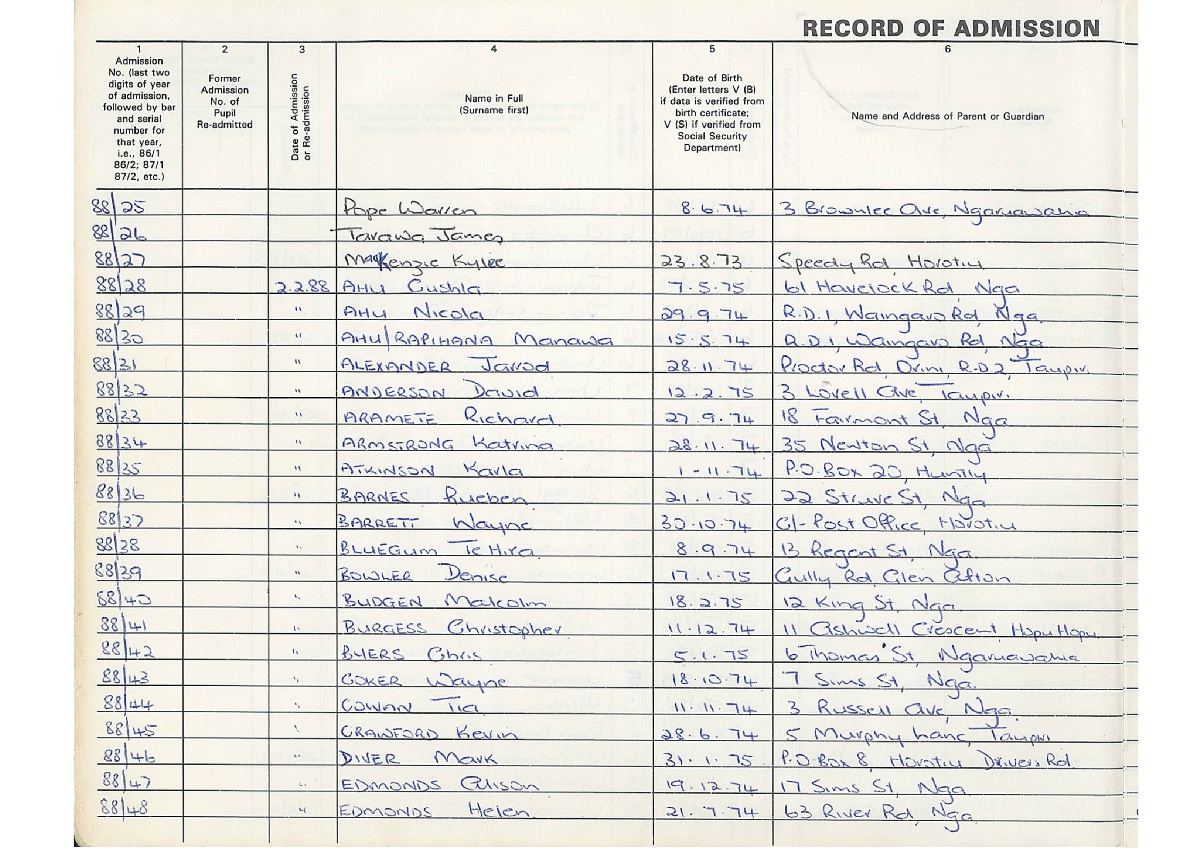 RECORD OF ADMISSION
1 2 3 4 5 6
Admission No. (last two digits of year of admission, followed by bar and serial number for that year, i.e., 86/1 86/2; 87/1 87/2, etc.)
Former Admission No. of Pupil Re-admitted
Date of Admission or Re-admission
Name in Full (Surname first)
Date of Birth (Enter letters V (B) if data is verified from birth certificate; V (S) if verified from Social Security Department)
Name and Address of Parent or Guardian
88/25 Pope Warren 8.6.74 3 Brownlee Ave, Ngaruawahia
88/26 Tarawa James
88/27 MacKenzie Kylee 23.8.73 Speedy Rd, Horotiu
88/28 2.2.88 AHU Cushla 7.5.75 61 Havelock Rd, Nga
88/29 " AHU Nicola 29.9.74 R.D.1, Waingaro Rd, Nga.
88/30 " AHU/RAPIHANA Manawa 15.5.74 R.D.1, Waingaro Rd, Nga
88/31 " ALEXANDER Jarrod 28.11.74 Proctor Rd, Orini, R.D.2, Taupiri.
88/32 " ANDERSON David 12.2.75 3 Lovell Ave, Taupiri.
88/33 " ARAMETE Richard. 27.9.74 18 Fairmont St, Nga
88/34 " ARMSTRONG Katrina 28.11.74 35 Newton St, Nga
88/35 " ATKINSON Karla 1-11.74 P.O.Box 20, Huntly
88/36 " BARNES Rueben 21.1.75 22 Struve St, Nga
88/37 " BARRETT Wayne 30.10.74 C/- Post Office, Horotiu
88/38 " BLUEGUM Te Hira. 8.9.74 13 Regent St, Nga.
88/39 " BOWLER Denise 17.1.75 Gully Rd, Glen Afton
88/40 " BUDGEN Malcolm 18.2.75 12 King St, Nga.
88/41 " BURGESS Christopher 11.12.74 11 Ashwell Crescent, Hopu Hopu.
88/42 " BYERS Chris 5.1.75 6 Thomas St, Ngaruawahia
88/43 " COKER Wayne 18.10.74 7 Sims St, Nga.
88/44 " COWAN Tia 11.11.74 3 Russell Ave, Nga.
88/45 " CRAWFORD Kevin 28.6.74 5 Murphy Lane, Taupiri
88/46 " DIVER Mark 31.1.75 P.O.Box 8, Horotiu Drivers Rd
88/47 " EDMONDS Alison 19.12.74 17 Sims St, Nga.
88/48 " EDMONDS Helen. 21.7.74 63 River Rd, Nga